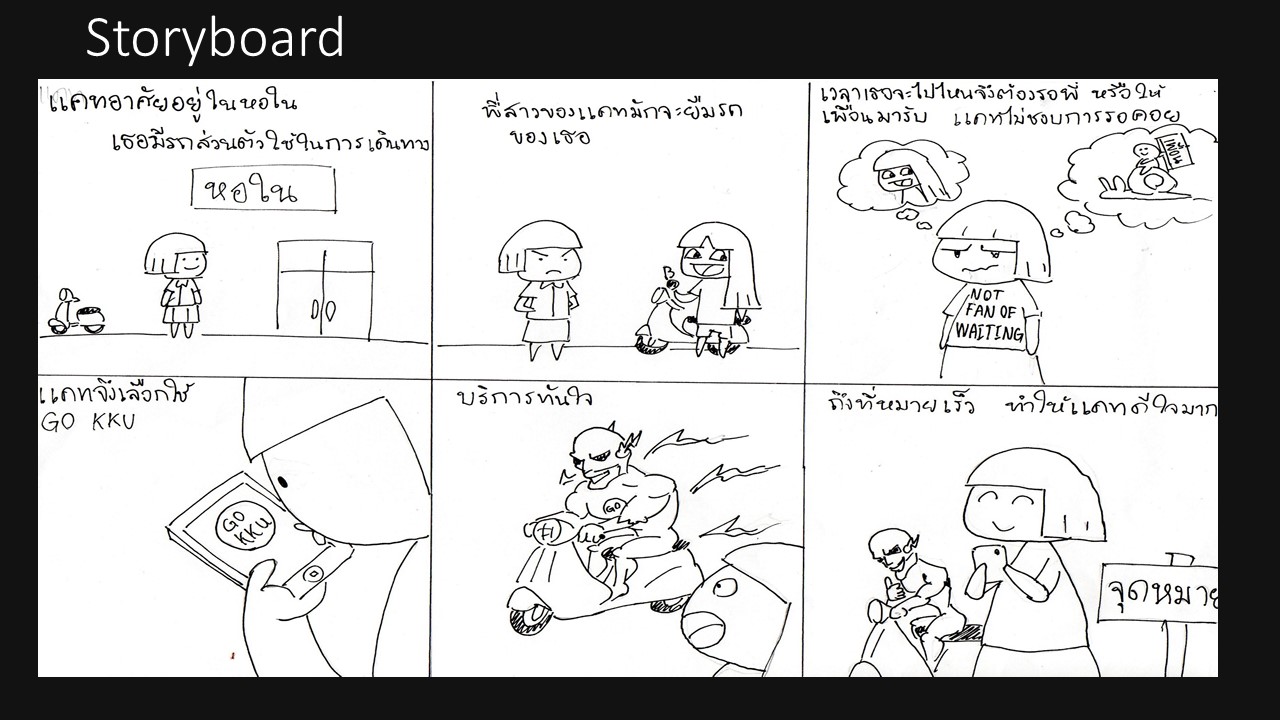 Storyboard
แคทอาศัยอยู่ในหอใน
เธอมีรถส่วนตัวใช้ในการเดินทาง
หอใน
พี่สาวของแคทมักจะยืมรถ
ของเธอ
เวลาเธอจะไปไหนจึงต้องรอพี่ หรือให้
เพื่อนมารับ แคทไม่ชอบการรอคอย
เพื่อน
NOT
FAN OF
WAITING
แคทจึงเลือกใช้
GO KKU
GO
KKU
บริการทันใจ
GO
ถึงที่หมายเร็ว ทำให้แคทดีใจมาก
จุดหมาย